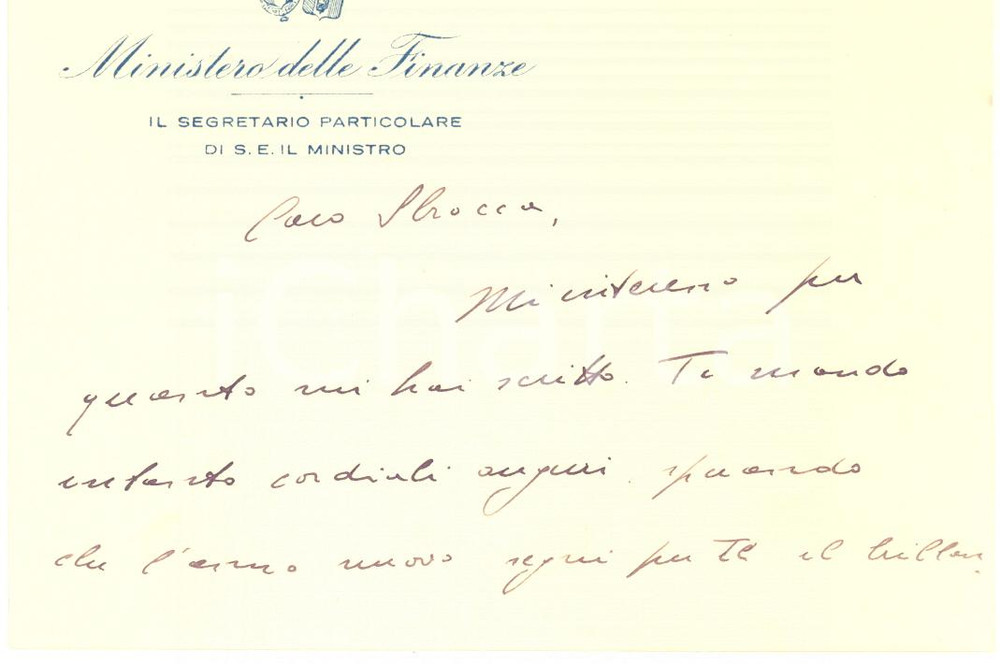 Ministero delle Finanze
IL SEGRETARIO PARTICOLARE
DI S. E. IL MINISTRO
Caro Sbrocca,
Mi interesso per
quanto mi hai scritto. Ti mando
intanto cordiali auguri, sperando
che l'anno nuovo segni per te il
iCharta